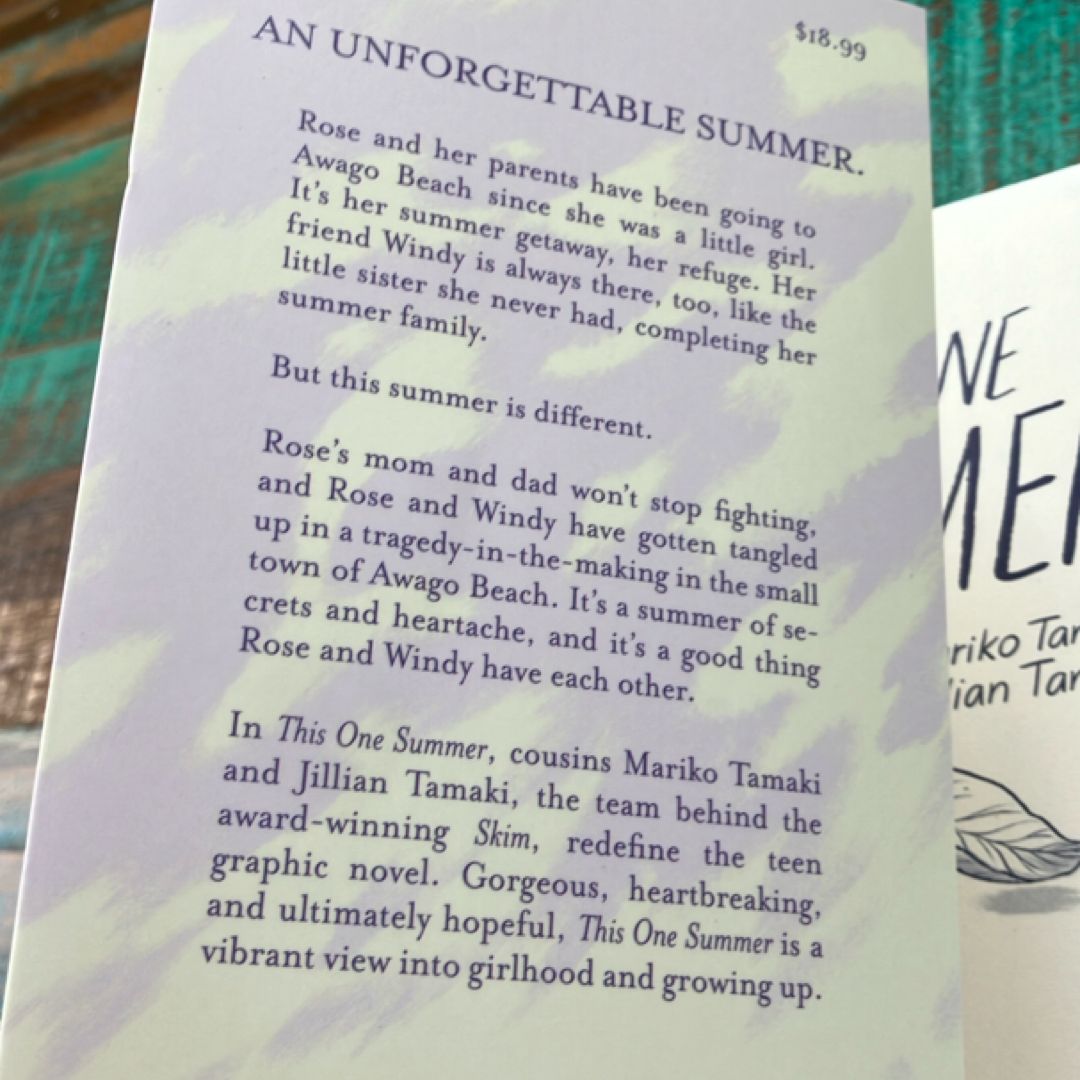 $18.99
AN UNFORGETTABLE SUMMER.
Rose and her parents have been going to
Awago Beach since she was a little girl.
It's her summer getaway, her refuge. Her
friend Windy is always there, too, like the
little sister she never had, completing her
summer family.
But this summer is different.
Rose's mom and dad won't stop fighting,
and Rose and Windy have gotten tangled
up in a tragedy-in-the-making in the small
town of Awago Beach. It's a summer of se-
crets and heartache, and it's a good thing
Rose and Windy have each other.
In This One Summer, cousins Mariko Tamaki
and Jillian Tamaki, the team behind the
award-winning Skim, redefine the teen
graphic novel. Gorgeous, heartbreaking,
and ultimately hopeful, This One Summer is a
vibrant view into girlhood and growing up.
NE
MER
riko Tam
lian Tam